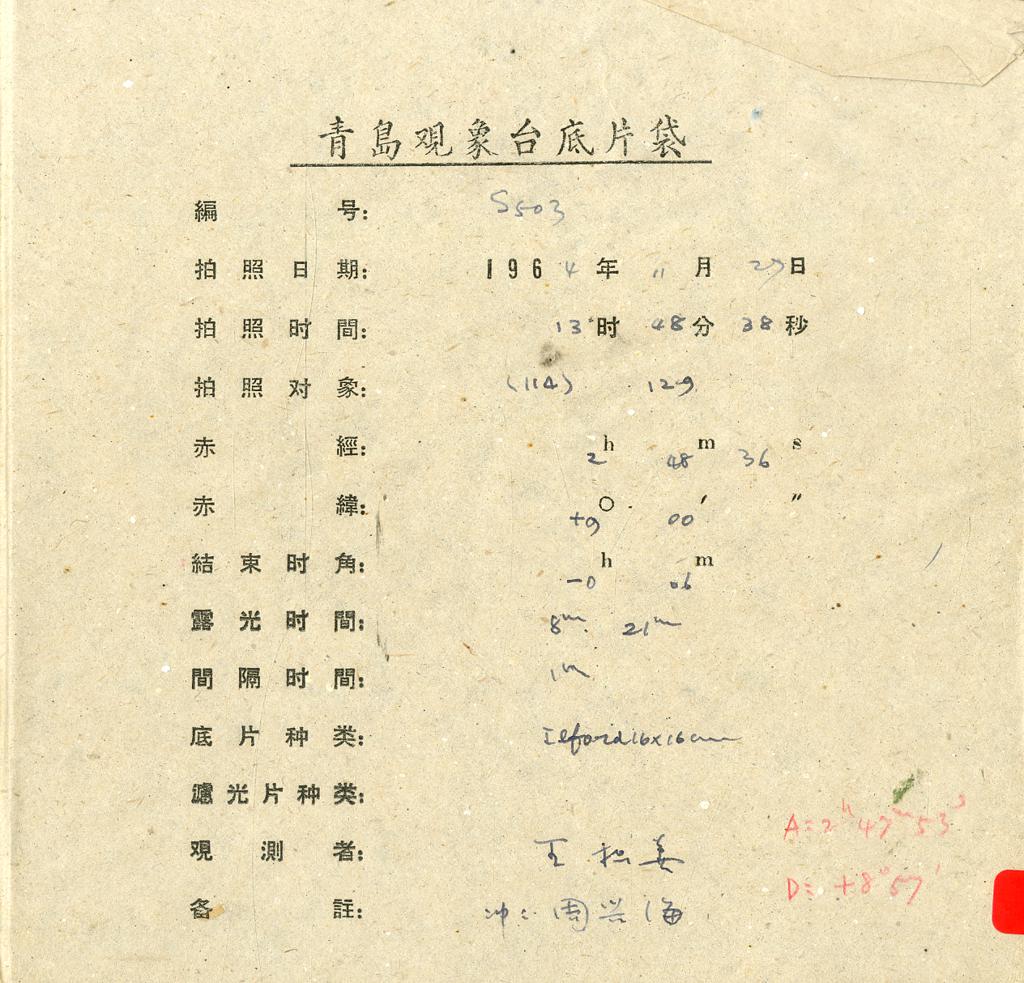 青島观象台底片袋
編号: S503
拍照日期: 1964年11月27日
拍照时間: 13时48分38秒
拍照对象: (114) 129
赤經: 2h 48m 36s
赤緯: +9° 00′ ″
結束时角: -0h 06m
露光时間: 8m 21m
間隔时間: 1m
底片种类: Ilford 16x16cm
濾光片种类:
观測者: 王 姜
A=2h47m53s
D=+8°57′
备註: 冲: 周兴海